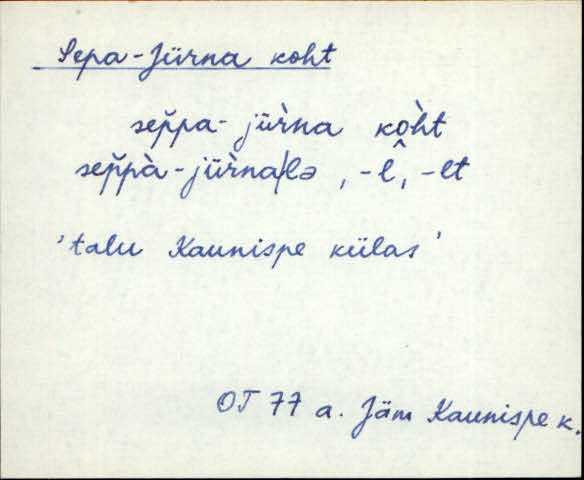 Sepa-Jürna koht
sep̆pa- jür̀na kòht
sep̆pà-jür̀na/lə, -l̂, -lt
'talu Kaunispe külas'
OT 77 a. Jäm Kaunispe k.